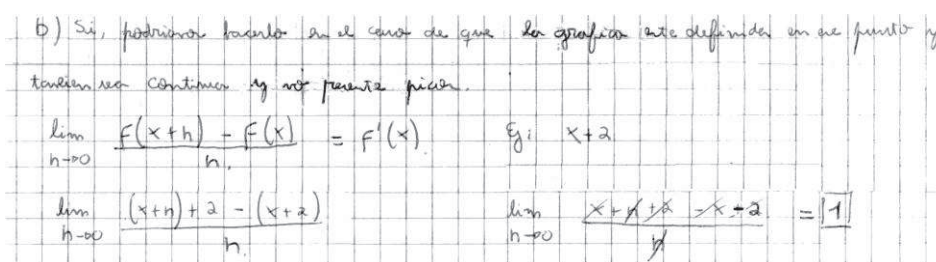 b) Si, podriamos hacerlo en el caso de que la grafica este definida en ese punto y
tambien sea continua y no presente picos.
lim h→0 F(x+h) - F(x) / h = F'(x) Ej: x+2
lim h→0 (x+h)+2 - (x+2) / h lim h→0 x+h+2 -x-2 / h = 1